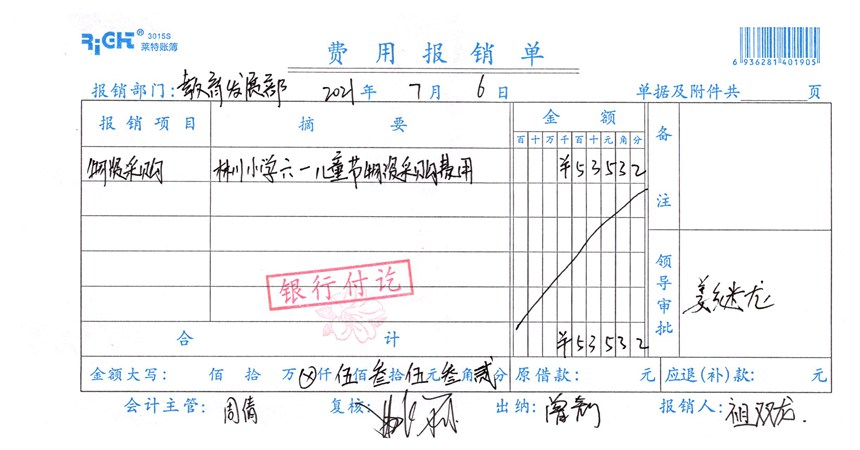 RiGHT® 3015S 莱特账簿
费用报销单
6 936281 401905
报销部门:教育发展部 2021年7月6日 单据及附件共 页
报销项目 摘要 金额 备注
百十万千百十元角分
物资采购 林川小学六一儿童节物资采购费用 ¥53532
银行付讫
领导审批 姜继龙
合计 ¥53532
金额大写: 佰 拾 万ⓧ仟伍佰叁拾伍元叁角贰分 原借款: 元 应退(补)款: 元
会计主管:周倩 复核: 出纳: 报销人:祖双龙.